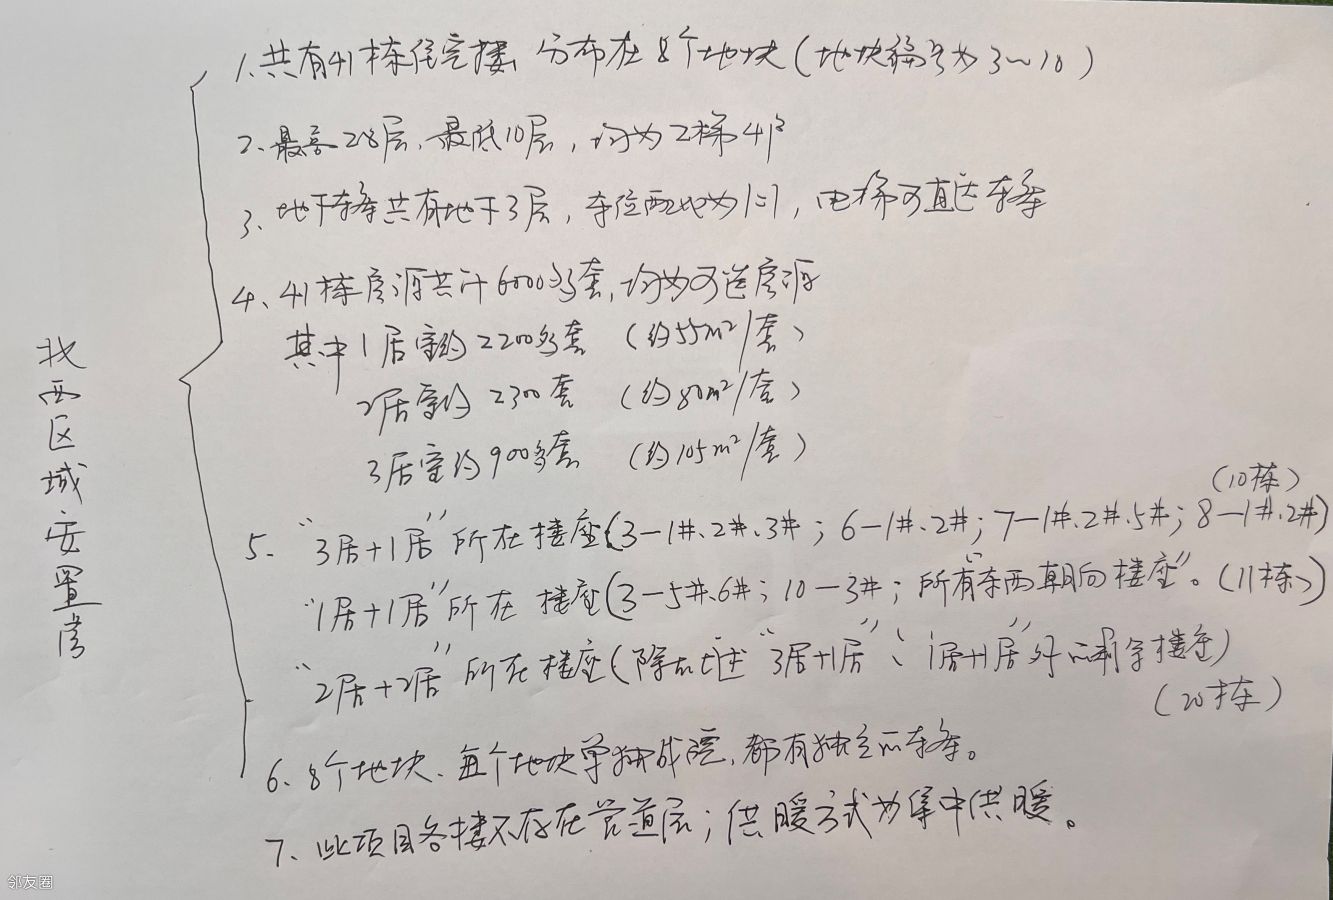 1.共有41栋住宅楼 分布在8个地块(地块编号为3~10)
2、最高28层,最低10层,均为2梯4户
3、地下车库共有地下3层,车位配比为1:1,电梯可直达车库
4、41栋房源共计6000多套,均为可选房源
其中1居室约2200多套 (约55m²/套)
2居室约2300套 (约80m²/套)
3居室约900多套 (约105m²/套)
(10栋)
5. "3居+1居"所在楼座(3-1#、2#、3#;6-1#、2#;7-1#、2#、5#;8-1#、2#)
"1居+1居"所在楼座(3-5#、6#;10-3#;"所有东西朝向楼座"。(11栋)
"2居+2居"所在楼座(除去上述"3居+1居"、"1居+1居"外的剩余楼座)
(20栋)
6、8个地块、每个地块单独成院,都有独立的车库。
7、此项目各楼不存在管道层;供暖方式为集中供暖。
西区域安置房
邻友圈